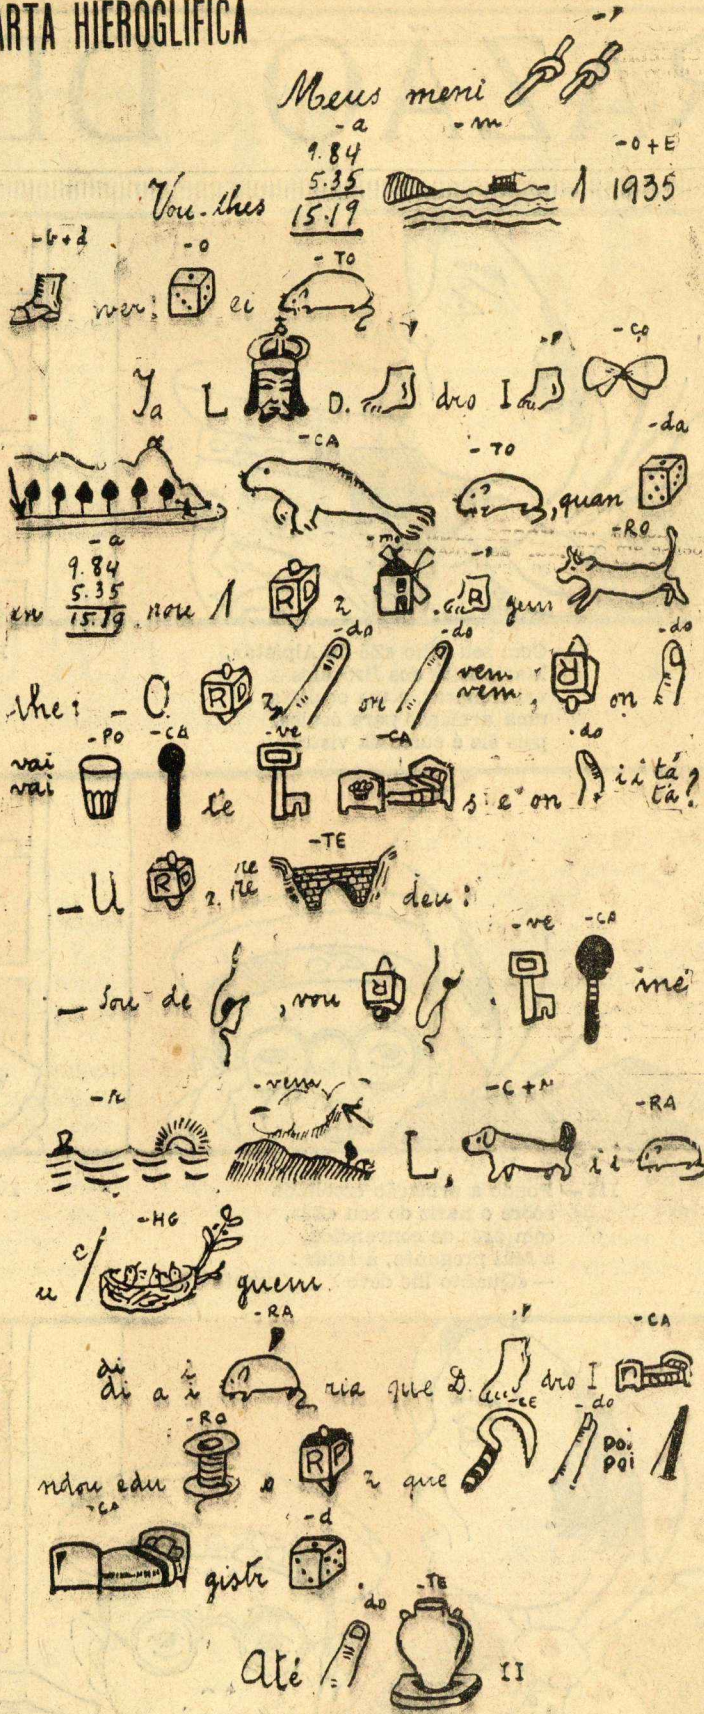 ARTA HIEROGLIFICA
-'
Meus meni
-a -m
9.84
5.35
15.19
Vou-lhes 1 1935
-O+E
-b+d -o -TO
ver: ei
-ço
Ja L D. dro I
-CA -TO -da
, quan
-a -mo -' -RO
9.84
5.35
15.19
en nou 1 R D z R guem
-do -do -do
-lhe: - O R D z, on vem vem, R on
-PO -CA -ve -CA -do
vai vai te s e on i i tá tá?
-TE
- U R D z re re deu:
-ve -CA
- Sou de , vou R . me
-vem -C+N -RA
L, i i
-HG
u c/ guem.
-RA ' -CA
di di a i i ria que D. dro I
-RO -CE -do
ndou edu o R P z que poi poi
-CA -d
gistr .
-do -TE
Até II